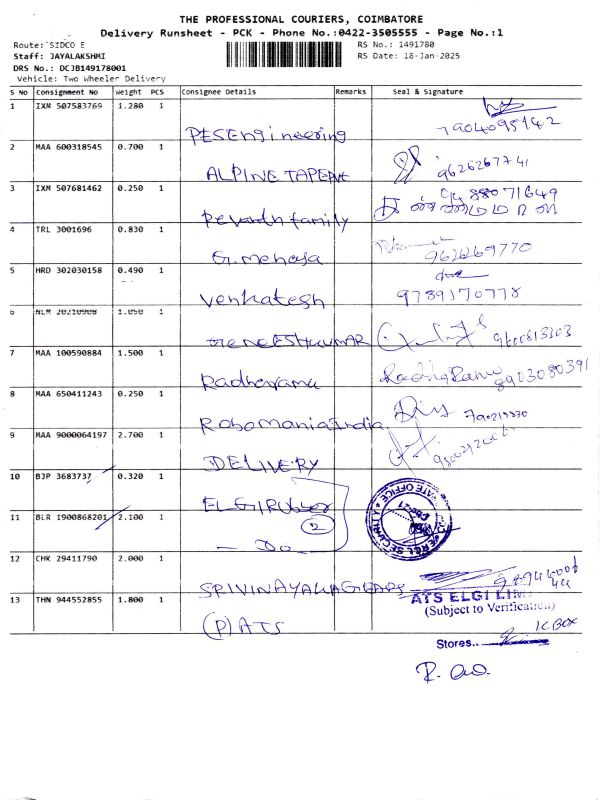 THE PROFESSIONAL COURIERS, COIMBATORE
Delivery Runsheet - PCK - Phone No.:0422-3505555 - Page No.:1
Route: SIDCO E
RS No.: 1491780
Staff: JAYALAKSHMI
RS Date: 18-Jan-2025
DRS No.: DCJB149178001
Vehicle: Two Wheeler Delivery
S No Consignment No Weight PCS Consignee Details Remarks Seal & Signature
1 IXM 507583769 1.280 1
PESEngineering 7904095142
2 MAA 600318545 0.700 1
ALPINE TAPE 9626267741
3 IXM 507681462 0.250 1
family
4 TRL 3001696 0.830 1
G.
5 HRD 302030158 0.490 1
Venkatesh 9789170778
6 NLR 20210908 1.050 1
7 MAA 100590884 1.500 1
8903080391
8 MAA 650411243 0.250 1
Robomania India
9 MAA 9000064197 2.700 1
DELIVERY
10 BJP 3683737 0.320 1
ELGI Rubber
11 BLR 1900868201 2.100 1
2
- Do
12 CHK 29411790 2.000 1
SRIVINAYAKAGEARS
ATS ELGI LIM
(Subject to Verification)
13 THN 944552855 1.800 1
(P) ATS
1C BOX
Stores..